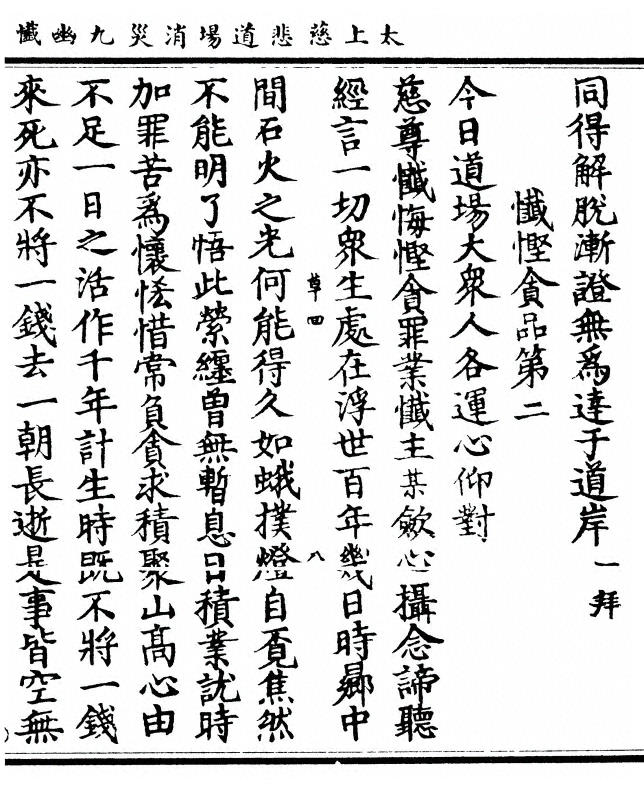 太上慈悲道場消災九幽懺
同得解脫漸證無爲達于道岸一拜
懺慳貪品第二
今日道場大衆人各運心仰對
慈尊懺悔慳貪罪業懺主某斂心攝念諦聽
經言一切衆生處在浮世百年幾日時𣊻中
草四 八
間石火之光何能得久如蛾撲燈自覓焦然
不能明了悟此縈纏曾無暫息日積業就時
加罪苦爲懷恡惜常負貪求積聚山高心由
不足一日之活作千年計生時既不將一錢
來死亦不將一錢去一朝長逝是事皆空無